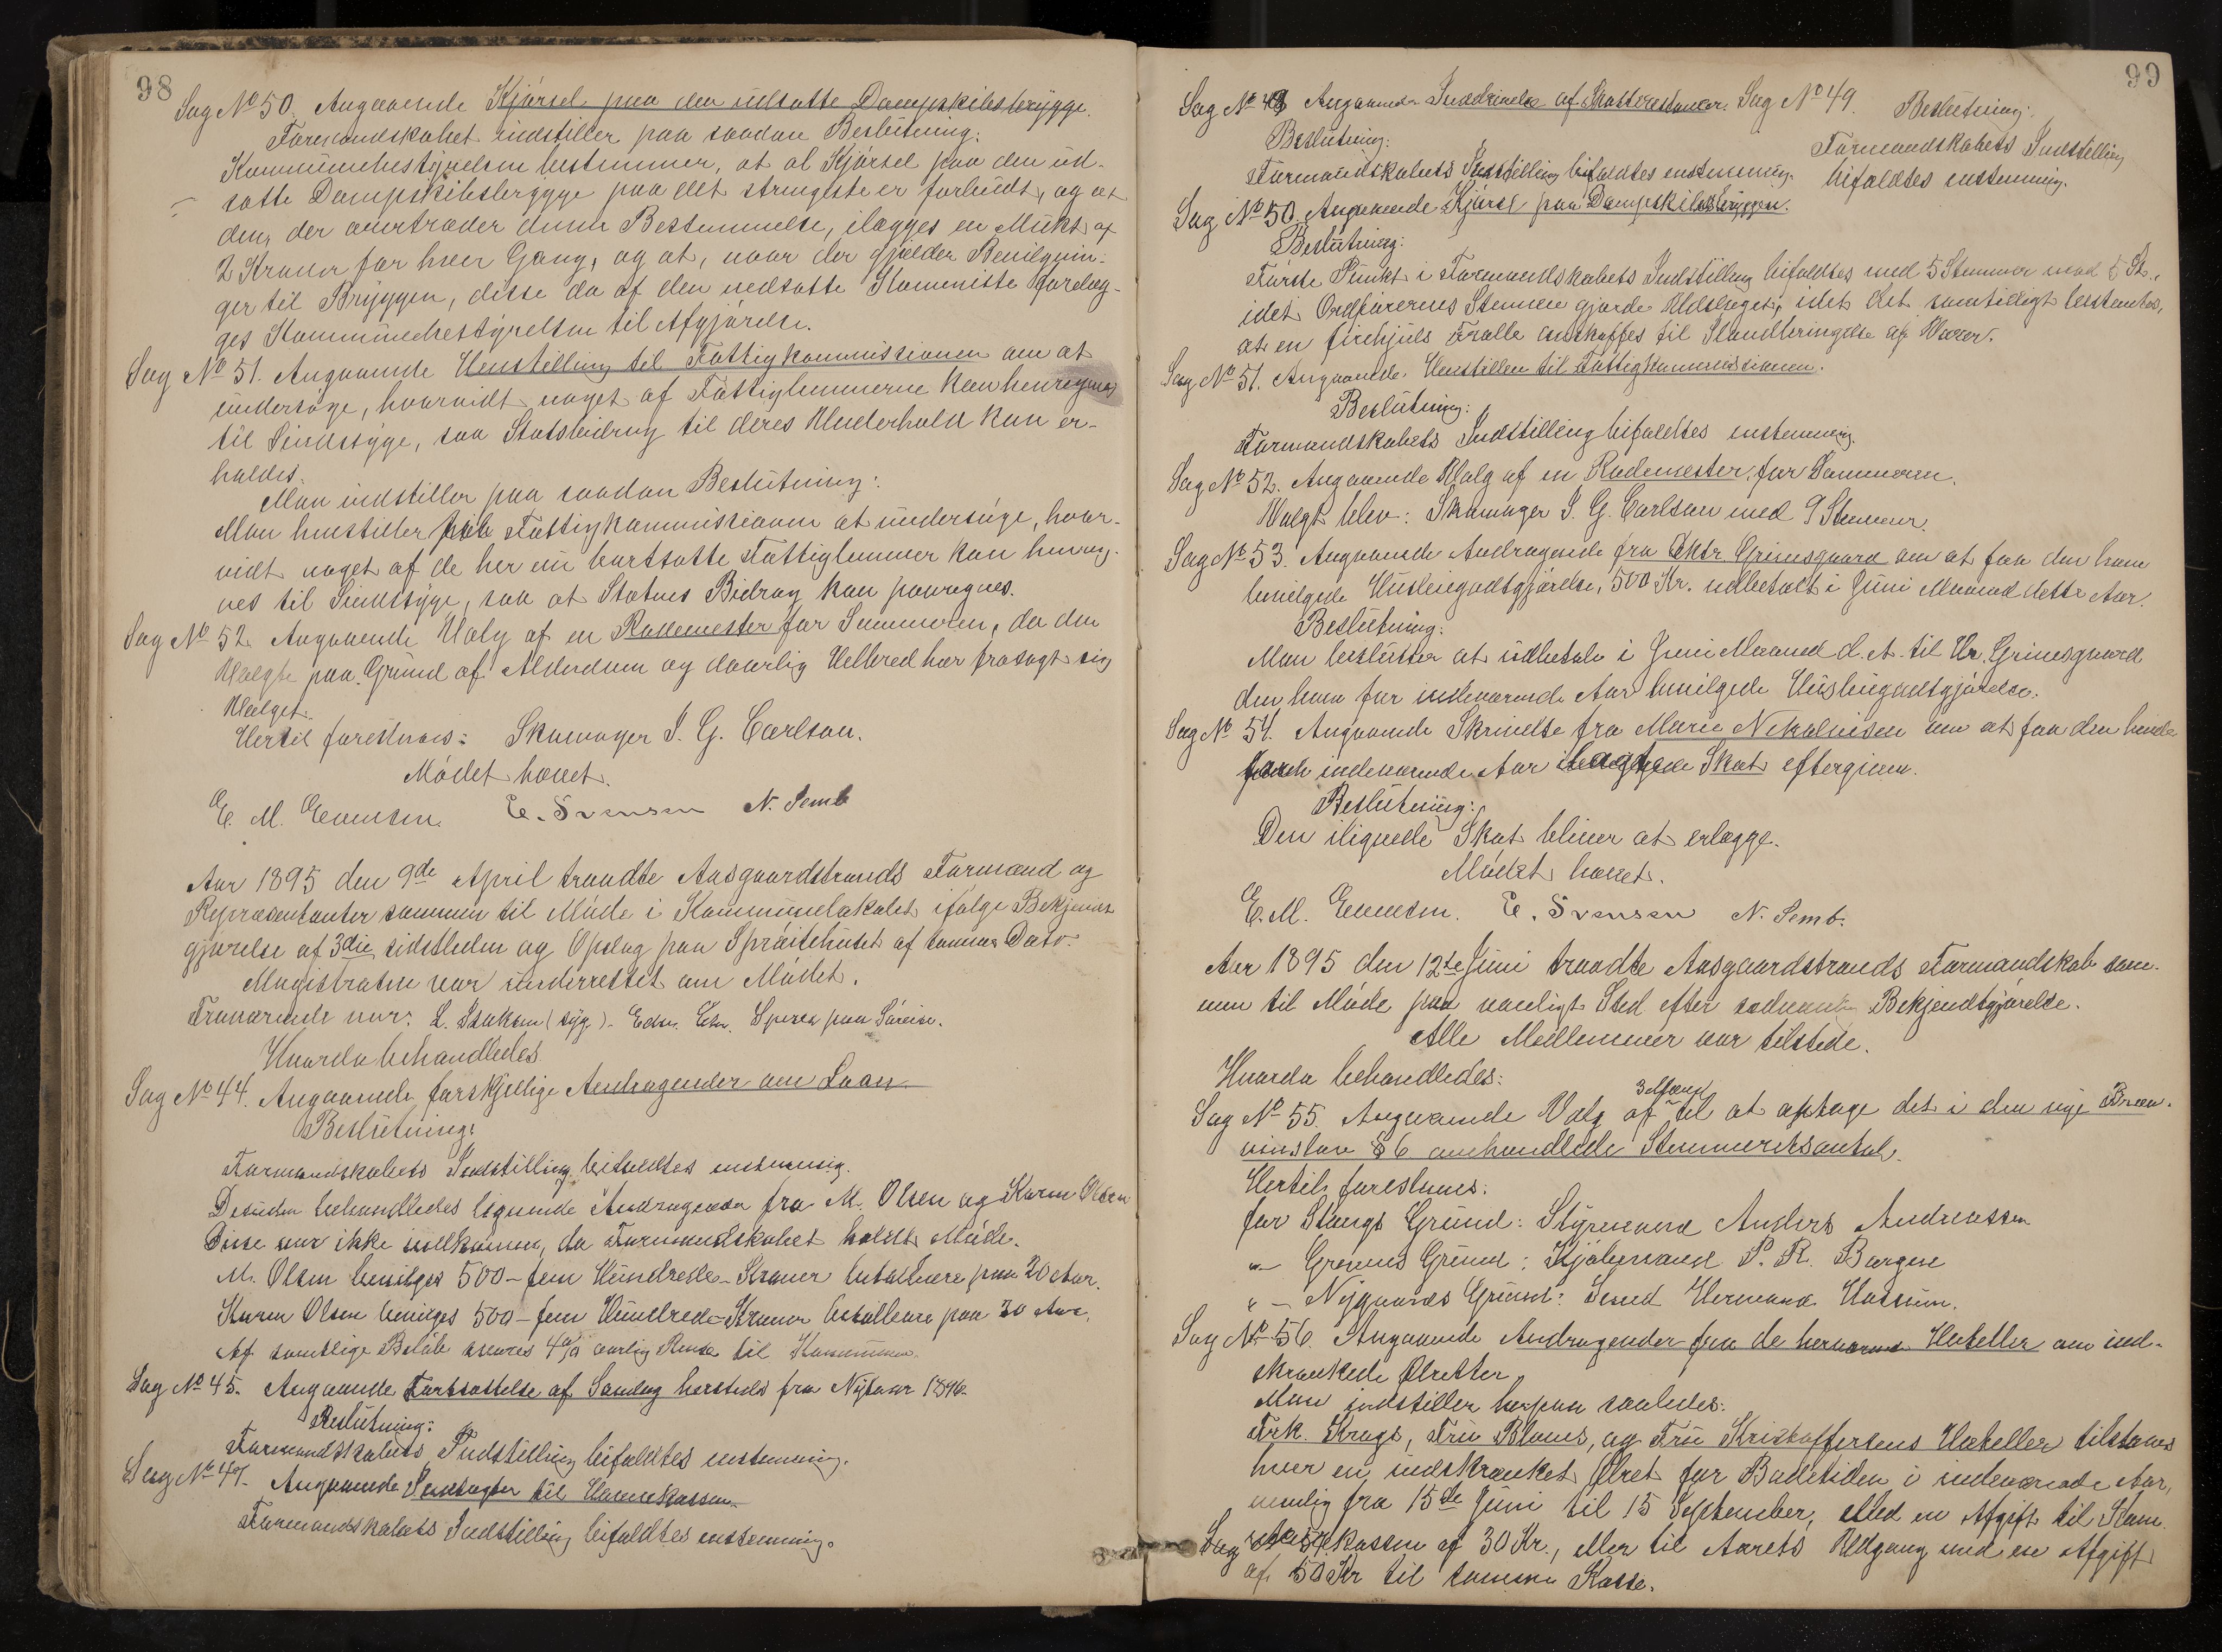 98
Sag No 50. Angaaende Kjørsel paa den udsatte Dampskibsbrygge.
Formandskabet indstiller paa saadan Beslutning:
Kommunebestyrelsen bestemmer, at al Kjørsel paa den ud-
satte Dampskibsbrygge paa det strengeste er forbudt, og at
den, der overtræder denne Bestemmelse, ilægges en Mulkt af
2 Kroner for hver Gang, og at, naar der gjælder Bevilgnin-
ger til Bryggen, disse da af den nedsatte Kommiste forelæg-
ges Kommunebestyrelsen til Afgjørelse.
Sag No 51. Angaaende Henstilling til Fattigkommissionen om at
undersøge, hvorvidt noget af Fattiglemmerne kan henregnes
til Sindssyge, saa Statsbidrag til deres Underhold kan er-
holdes.
Man indstiller paa saadan Beslutning:
Man henstiller til Fattigkommissionen at undersøge, hvor-
vidt noget af de her nu bortsatte Fattiglemmer kan henreg-
nes til Sindssyge, saa at Statens Bidrag kan paaregnes.
Sag No 52. Angaaende Valg af en Rodemester for Sommeren, da den
Valgte paa Grund af Alderdom og daarlig Helbred har frasagt sig
Valget.
Hertil foreslaaes: Skomager I. G. Carlson.
Mødet hævet.
E. M. Evensen. E. Svensen N. Semb
Aar 1895 den 9de April traadte Aasgaardstrands Formænd og
Repræsentanter sammen til Møde i Kommunelokalet ifølge Bekjendt
gjørelse af 3die sidstleden og Opslag paa Sprøitehuset af samme Dato.
Magistraten var underrettet om Mødet.
Fraværende var: L. Isaksen (syg). Edv. paa Søreise.
Hvorda behandledes
Sag No 44. Angaaende forskjellige Andragender om Laan
Beslutning:
Formandskabets Indstilling bifaldtes enstemmig.
Desuden behandledes lignende Andragender fra M. Olsen og Karen Olsen
Disse var ikke indkommen, da Formandskabet holdt Møde.
M. Olsen bevilges 500 - fem Hundrede - Kroner betalbare paa 20 Aar.
Karen Olsen bevilges 500 - fem Hundrede - Kroner betalbare paa 20 Aar.
Af samtlige Beløb svares 4% aarlig Rente til Kommunen.
Sag No 45. Angaaende Fortsættelse af Samlag hersteds fra Nytaar 1896.
Beslutning:
Formandskabets Indstilling bifaldtes enstemmig.
Sag No 47. Angaaende Indtægter til Havnekassen.
Formandskabets Indstilling bifaldtes enstemmig.
99
Sag No 48 Angaaende Inddrivelse af Skatterestancer. Sag No 49. Beslutning:
Beslutning: Formandskabets Indstilling
Formandskabets Indstilling bifaldtes enstemmig. bifaldtes enstemmig.
Sag No 50. Angaaende Kjørsel paa Dampskibsbryggen.
Beslutning:
Første Punkt i Formandskabets Indstilling bifaldtes med 5 Stemmer mod 5 St.,
idet Ordførerens Stemme gjorde Udslaget, idet det samtidigt bestemtes,
at en firehjuls Tralle anskaffes til Ilandbringelse af Varer.
Sag No 51. Angaaende Henstillen til Fattigkommissionen.
Beslutning:
Formandskabets Indstilling bifaldtes enstemmig.
Sag No 52. Angaaende Valg af en Rodemester for Sommeren.
Valgt blev: Skomager I. G. Carlson med 9 Stemmer.
Sag No 53. Angaaende Andragende fra Grimsgaard om at faa den ham
bevilgede Husleiegodtgjørelse, 500 Kr. udbetalt i Juni Maaned dette Aar.
Beslutning:
Man beslutter at udbetale i Juni Maaned d. A. til Hr. Grimsgaard
den ham for indeværende Aar bevilgede Husleiegodtgjørelse.
Sag No 54. Angaaende Skrivelse fra Marie Nikolaisen om at faa den hende
for indeværende Aar ilagte Skat eftergiven.
Beslutning:
Den ilignede Skat bliver at erlægge.
Mødet hævet.
E. M. Evensen. E. Svensen N. Semb.
Aar 1895 den 12te Juni traadte Aasgaardstrands Formandskab sam-
men til Møde paa vanligt Sted efter sedvanlig Bekjendtgjørelse.
Alle Medlemmer var tilstede.
Hvorda behandledes:
3 Mænd
Sag No 55. Angaaende Valg af til at optage det i den nye Bræn-
vinslov § 6 omhandlede Stemmeretsantal.
Hertil foreslaaes:
for Stangs Grund: Styrmand Anders Andreassen
" - Grevens Grund: Kjøbmand P. R. Borgen
" - Nygaards Grund: Smed Hermand Hassum.
Sag No 56. Angaaende Andragender fra de herværende Hoteller om ind-
skrænkede Ølretter
Man indstiller herpaa saaledes:
Frk. Krags, Fru Bloms, og Fru Kristoffersens Hoteller tilstaaes
hver en indskrænket Ølret for Badetiden i indeværende Aar,
nemlig fra 15de Juni til 15 September, mod en Afgift til Kom-
munekassen af 30 Kr., eller til Aarets Udgang mod en Afgift
af 50 Kr til samme Kasse.